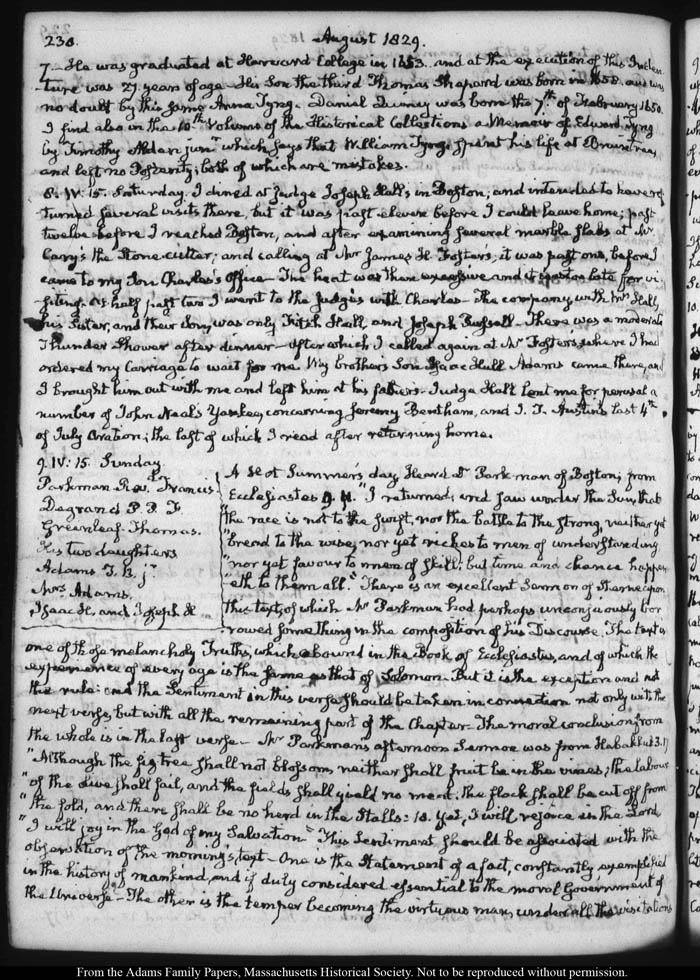 230.
August 1829.
7. He was graduated at Harvard College in 1653. and at the execution of this Inden-
ture was 27 years of age. His Son the third Thomas Shepard was born in 1658. and was
no doubt by this same Anna Tyng. Daniel Quincy was born the 7th. of February 1650.
I find also in the 10th Volume of the Historical Collections a Memoir of Edward Tyng
by Timothy Alden junr. which says that William Tyng spent his life at Braintree,
and left no Posterity; both of which are mistakes.
8. IV. 15. Saturday. I dined at Judge Joseph Hall's in Boston; and intended to have re-
turned several visits there, but it was past eleven before I could leave home; past
twelve before I reached Boston, and after examining several marble slabs at Mr
Cary's the Stone-cutter; and calling at Mr James H. Foster's; it was past one, before I
came to my Son Charles's Office. The heat was then excessive and it was too late for vi-
siting. At half past two I went to the Judge's with Charles. The company with Mrs Hall,
his Sister, and their Son, was only Fitch Hall, and Joseph Russell. There was a moderate
Thunder Shower after dinner after which I called again at Mr Foster's, where I had
ordered my Carriage to wait for me. My brother's Son Isaac Hull Adams came there, and
I brought him out with me and left him at his father's. Judge Hall lent me for perusal a
number of John Neal's Yankee, concerning Jeremy Bentham, and J. T. Austin's last 4th.
of July Oration; the last of which I read after returning home.
9. IV: 15. Sunday.
Parkman Revd. Francis
Degrand P. P. F.
Greenleaf Thomas.
His two daughters
Adams T. B. jr
Mrs Adams.
Isaac H. and Joseph H
A Hot Summer's day, Heard Dr Parkman of Boston; from
Ecclesiastes 9. 11. "I returned, and saw under the Sun, that
"the race is not to the swift, nor the battle to the strong, neither yet
"bread to the wise, nor yet riches to men of understanding
"nor yet favour to men of skill; but time and chance happen-
"eth to them all." There is an excellent Sermon of Sterne upon
this text, of which Mr Parkman had perhaps unconsciously bor-
rowed something in the composition of his Discourse. The text is
one of those melancholy Truths, which abound in the Book of Ecclesiastes, and of which the
experience of every age is the same as that of Solomon. But it is the exception and not
the rule: and the Sentiment in this verse should be taken in connection not only with the
next verse, but with all the remaining part of the Chapter. The moral conclusion from
the whole is in the last verse. Mr Parkman's afternoon Sermon was from Habakkuk 3. 17
"Although the fig tree shall not blossom, neither shall fruit be in the vines; the labour
"of the olive shall fail, and the fields shall yield no meat; the flock shall be cut off from
"the fold, and there shall be no herd in the Stalls: 18. Yet, I will rejoice in the Lord
"I will joy in the God of my Salvation." This Sentiment should be associated with the
observation of the morning's text. One is the Statement of a fact, constantly exemplified
in the history of mankind, and if duly considered essential to the moral Government of
the Universe. The other is the temper becoming the virtuous man, under all the visitations
From the Adams Family Papers, Massachusetts Historical Society. Not to be reproduced without permission.